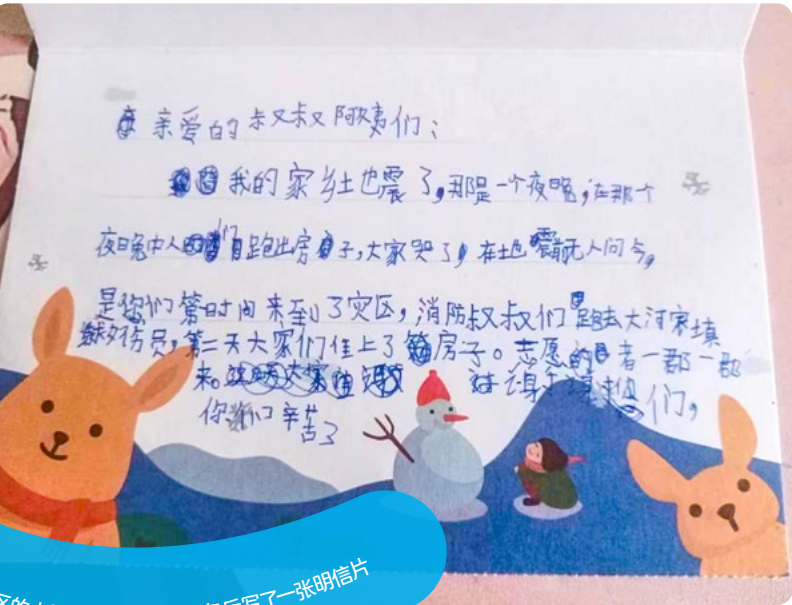 亲爱的叔叔阿姨们：
我的家乡土也震了，那是一个夜晚，在那个
夜晚中人们跑出房子，大家哭了，在土也震前无人问今，
是您们第时间来到了灾区，消防叔叔们跑去大河家填
伤员，第二天大家们住上了房子。志愿者一郡一郡
来。谢谢您们，
你们辛苦了
写了一张明信片